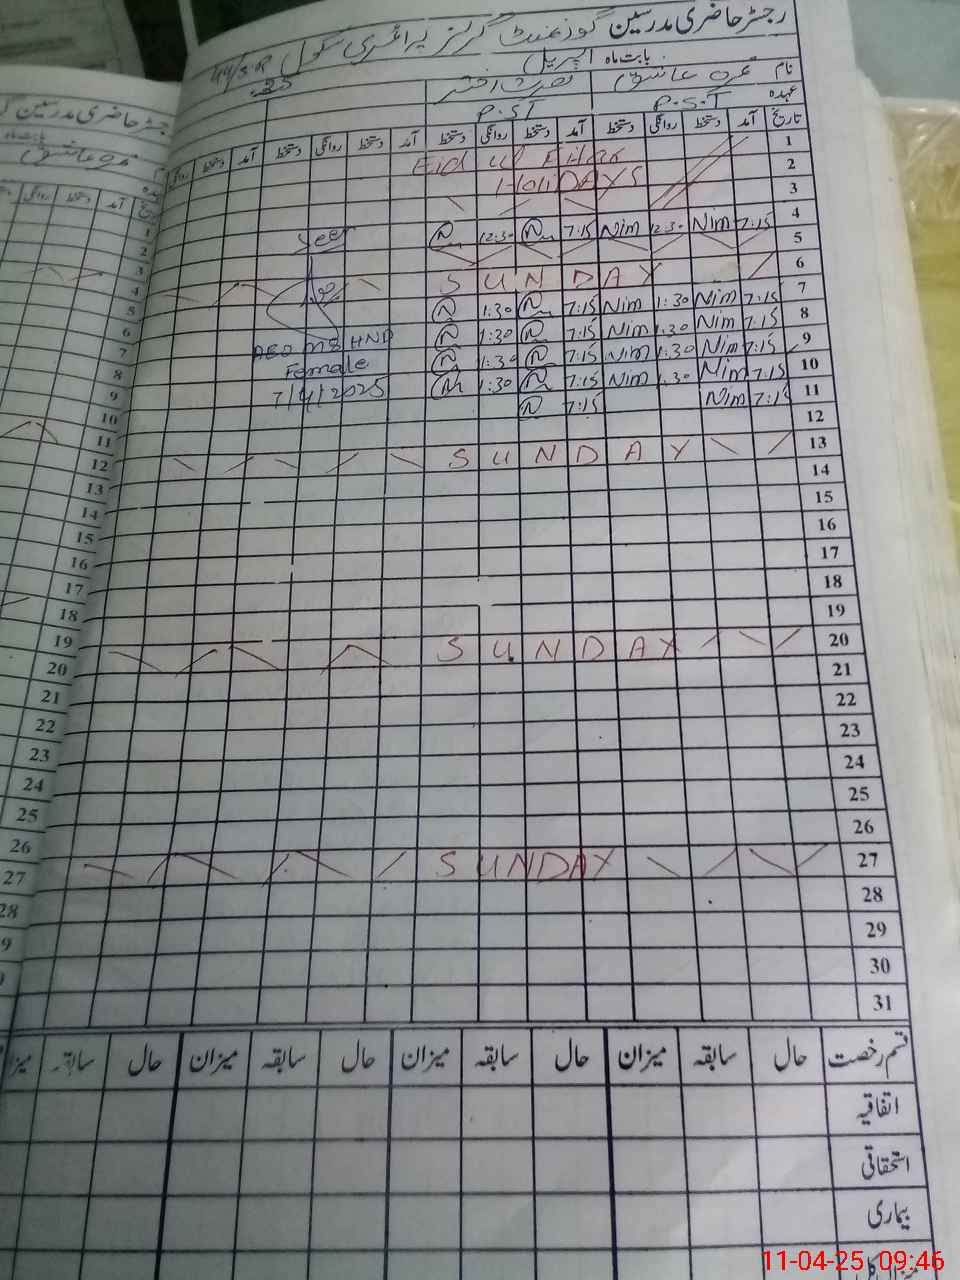 رجسٹر حاضری مدرسین گورنمنٹ گرلز پرائمری سکول
بابت ماہ اپریل
نام
عہدہ P.S.T P.ST
تاریخ آمد دستخط روانگی دستخط آمد دستخط روانگی دستخط آمد دستخط روانگی دستخط آمد دستخط روانگی
1 Eid ul
2 HoliDAYS
3
4 7:15 Nim 12:30 Nim 7:15 12:30
5
6 SUNDAY
7 7:15 Nim 1:30 Nim 7:15 1:30
8 7:15 Nim 1:30 Nim 7:15 1:30
9 7:15 Nim 1:30 Nim 7:15 1:30
10 7:15 Nim 1:30 Nim 7:15 1:30
11 7:15 Nim 7:15
12
13 SUNDAY
14
15
16
17
18
19
20 SUNDAY
21
22
23
24
25
26
27 SUNDAY
28
29
30
31
Seen
AEO HND
Female
7/4/2025
قسم رخصت حال سابقہ میزان حال سابقہ میزان حال سابقہ میزان حال سابقہ میزان
اتفاقیہ
استحقاقی
بیماری
جسٹر حاضری مدرسین
بابت ماہ
آمد دستخط روانگی دستخط
1
2
3
4
5
6
7
8
9
10
11
12
13
14
15
16
17
18
19
20
21
22
23
24
25
26
27
28
11-04-25 09:46